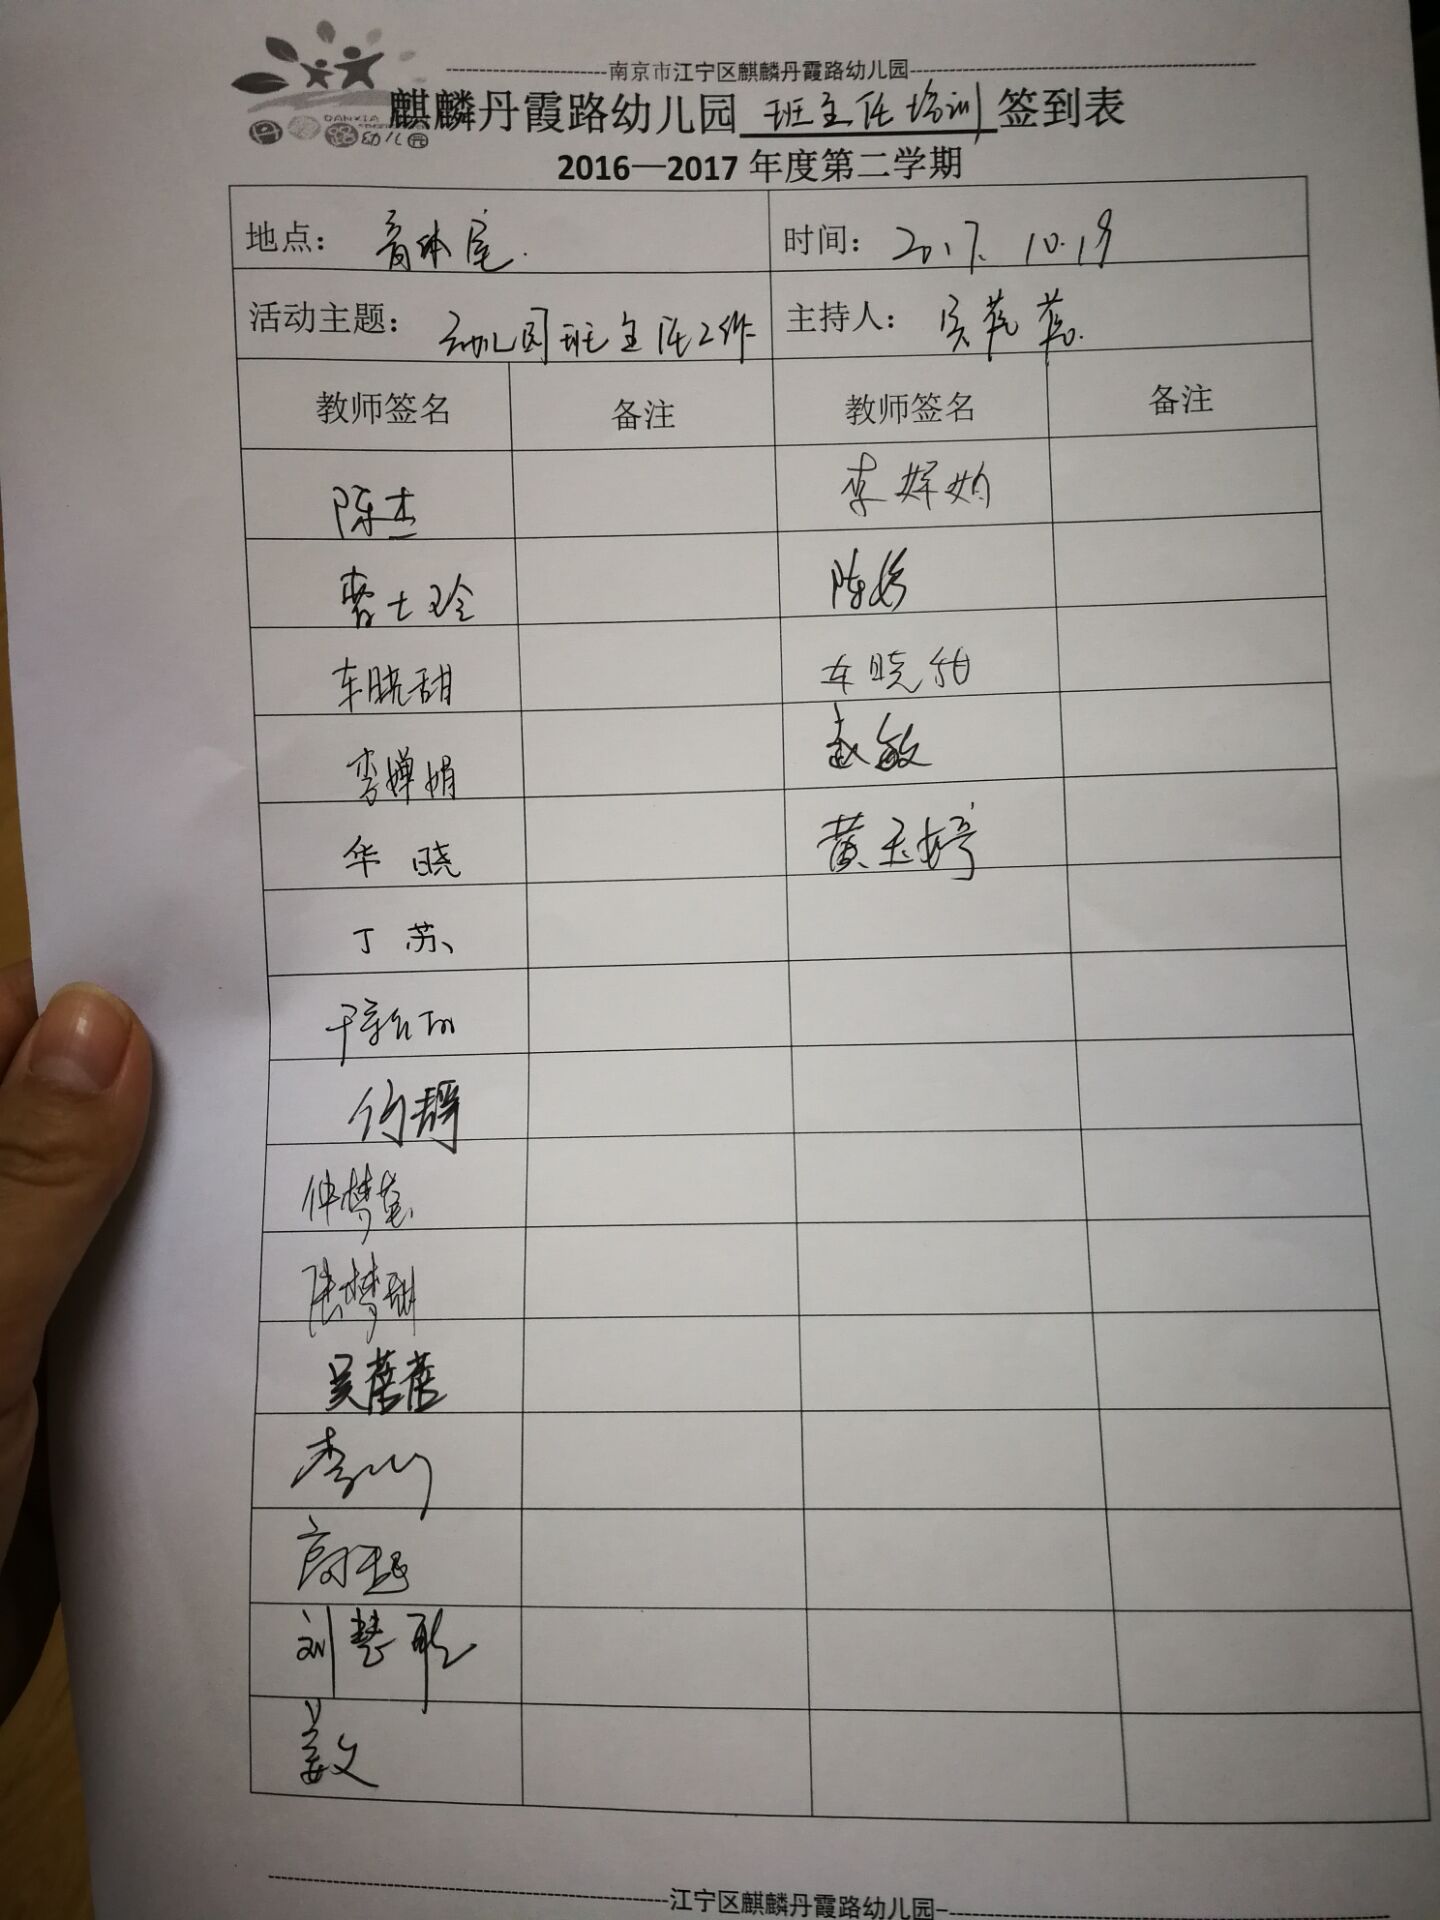 南京市江宁区麒麟丹霞路幼儿园
DANXIA
幼儿园
麒麟丹霞路幼儿园 班主任培训 签到表
2016—2017 年度第二学期
地点： 音体室. 时间： 2017. 10.19
活动主题： 幼儿园班主任工作 主持人： 吴蓓蓓.
教师签名 备注 教师签名 备注
陈杰
曹士玲 陈婷
车晓甜 车晓甜
李婵娟 赵敏
华晓 黄玉婷
丁苏
何静
仲梦莹
陈梦甜
吴蓓蓓
刘慧聪
姜文
江宁区麒麟丹霞路幼儿园